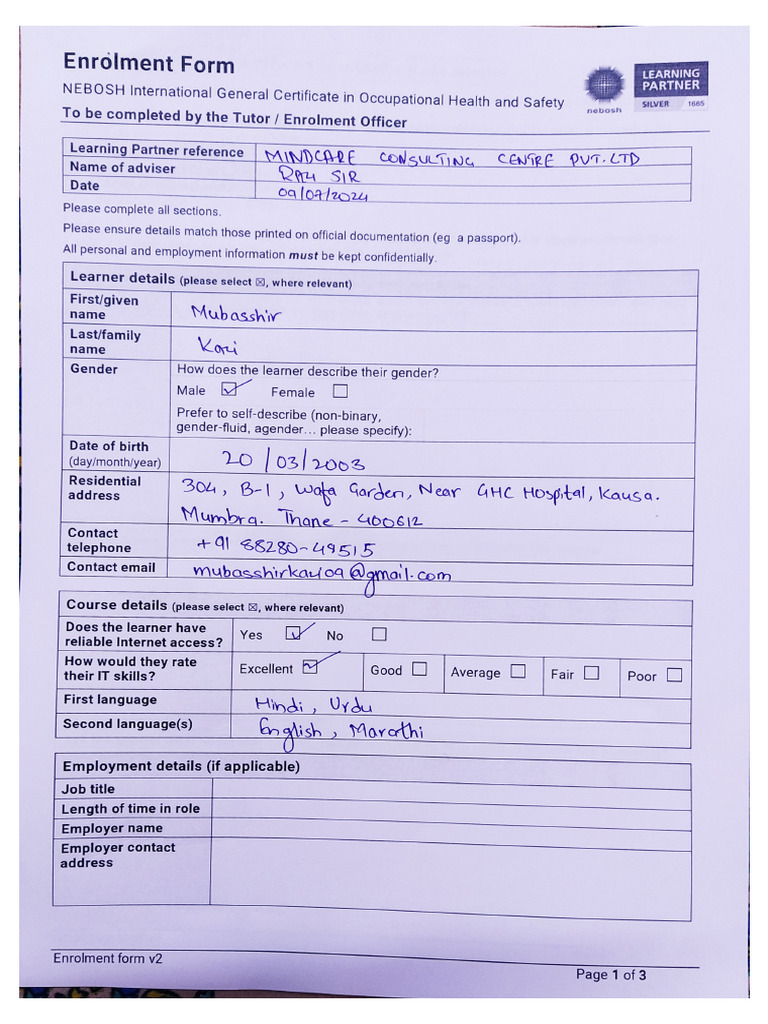 Enrolment Form
NEBOSH International General Certificate in Occupational Health and Safety
To be completed by the Tutor / Enrolment Officer
nebosh
LEARNING
PARTNER
SILVER 1665
Learning Partner reference MINDCARE CONSULTING CENTRE PVT. LTD
Name of adviser RAJU SIR
Date 09/07/2024
Please complete all sections.
Please ensure details match those printed on official documentation (eg a passport).
All personal and employment information must be kept confidentially.
Learner details (please select ☒, where relevant)
First/given
name Mubasshir
Last/family
name Kazi
Gender How does the learner describe their gender?
Male ☑ Female ☐
Prefer to self-describe (non-binary,
gender-fluid, agender... please specify):
Date of birth
(day/month/year) 20/03/2003
Residential
address 304, B-1, Wafa Garden, Near GHC Hospital, Kausa.
Mumbra. Thane - 400612
Contact
telephone +91 88280-49515
Contact email mubasshirkazi09@gmail.com
Course details (please select ☒, where relevant)
Does the learner have
reliable Internet access? Yes ☑ No ☐
How would they rate
their IT skills? Excellent ☑ Good ☐ Average ☐ Fair ☐ Poor ☐
First language Hindi, Urdu
Second language(s) English, Marathi
Employment details (if applicable)
Job title
Length of time in role
Employer name
Employer contact
address
Enrolment form v2
Page 1 of 3